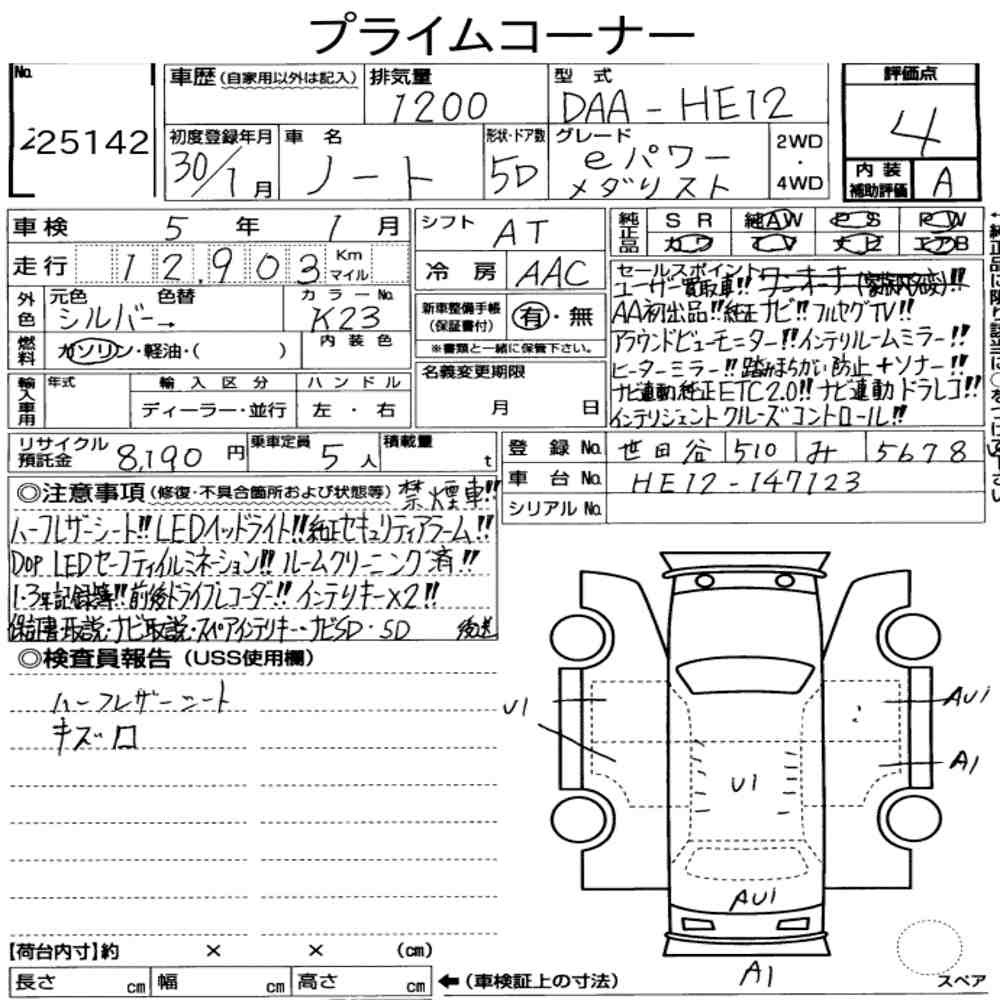 プライムコーナー
No.
225142
車歴（自家用以外は記入）
排気量
1200
型式
DAA-HE12
評価点
4
初度登録年月
30/1月
車名
ノート
形状・ドア数
5D
グレード
eパワー
メダリスト
2WD
・
4WD
内装
補助評価
A
車検 5年 1月
シフト AT
純正品
SR 純AW PS PW
カワ TV ナビ エアB
走行 12,903 Km マイル
冷房 AAC
外色
元色 色替
シルバー→
カラーNo.
K23
新車整備手帳
（保証書付）
有・無
※書類と一緒に保管下さい。
燃料
ガソリン・軽油・（ ）
内装色
名義変更期限
月 日
輸入車用
年式
輸入区分
ディーラー・並行
ハンドル
左・右
セールスポイント
ユーザー買取車!! ワンオーナー
AA初出品!! 純正ナビ!! フルセグTV!!
アラウンドビューモニター!! インテリルームミラー!!
ヒーターミラー!! 踏みまちがい防止+ソナー!!
ナビ連動純正ETC2.0!! ナビ連動ドラレコ!!
インテリジェントクルーズコントロール!!
リサイクル
預託金
8,190円
乗車定員
5人
積載量
t
登録No. 世田谷 510 み 5678
車台No. HE12-147123
シリアルNo.
◎注意事項（修復・不具合箇所および状態等）禁煙車!!
ハーフレザーシート!! LEDヘッドライト!! 純正セキュリティアラーム!!
DOP LEDセーフティイルミネーション!! ルームクリーニング済!!
1・3年記録簿!! 前後ドライブレコーダー!! インテリキー×2!!
保証書・取説・ナビ取説・スペアインテリキー・ナビSD・SD 後送
◎検査員報告（USS使用欄）
ハーフレザーシート
キズ ロ
U1
AU1
A1
U1
AU1
A1
【荷台内寸】約 × × （cm）
長さ cm 幅 cm 高さ cm
←（車検証上の寸法）
スペア